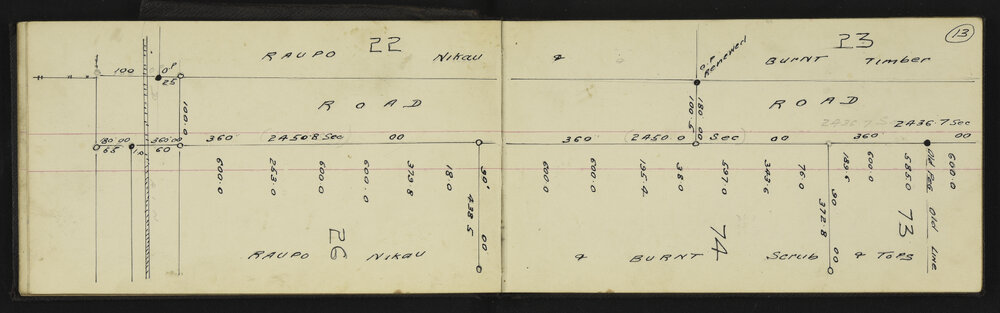 13
22
23
RAUPO Nikau & BURNT Timber
100 O.P 25
O.P Renewed
100.0
180 00
100.5
ROAD
ROAD
2436.7 Sec
180 00 360 00 360 2450.8 Sec 00 360 (2450 0 Sec) 00 360 00
65 I.P 60
600.0 253.0 600.0 600.0 379.8 18.0
90' 00
438.5
600.0 600.0 195.4 38.0 597.0 343.6 76.0 189.6 600.0 585.0
Old Peg Old Line
600.0
90 00
372.8
26
74
73
RAUPO Nikau & BURNT Scrub & Tops